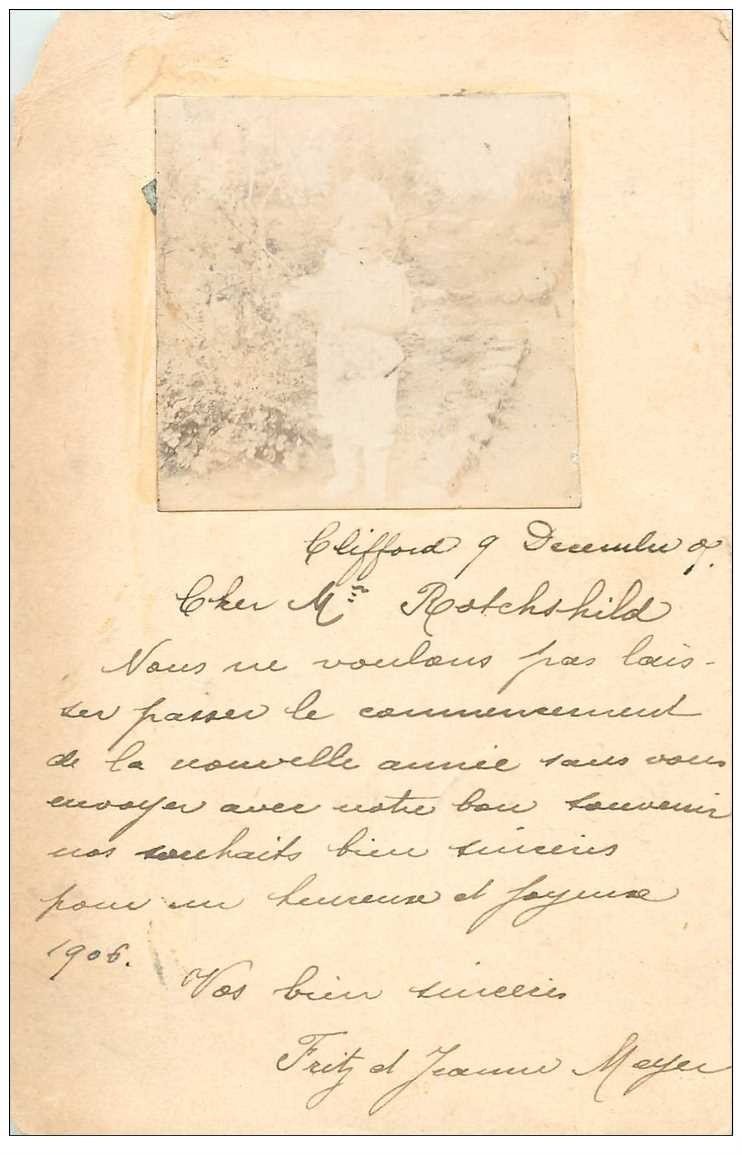 Clifford 9 Decembre
Cher Mr Rotchshild
Nous ne voulons pas lais-
ser passer le commencement
de la nouvelle année sans vous
envoyer avec notre bon souvenir
nos souhaits bien sincères
pour un heureux et joyeuse
1906.
Vos bien sincères
Fritz et Jeanne Meyer